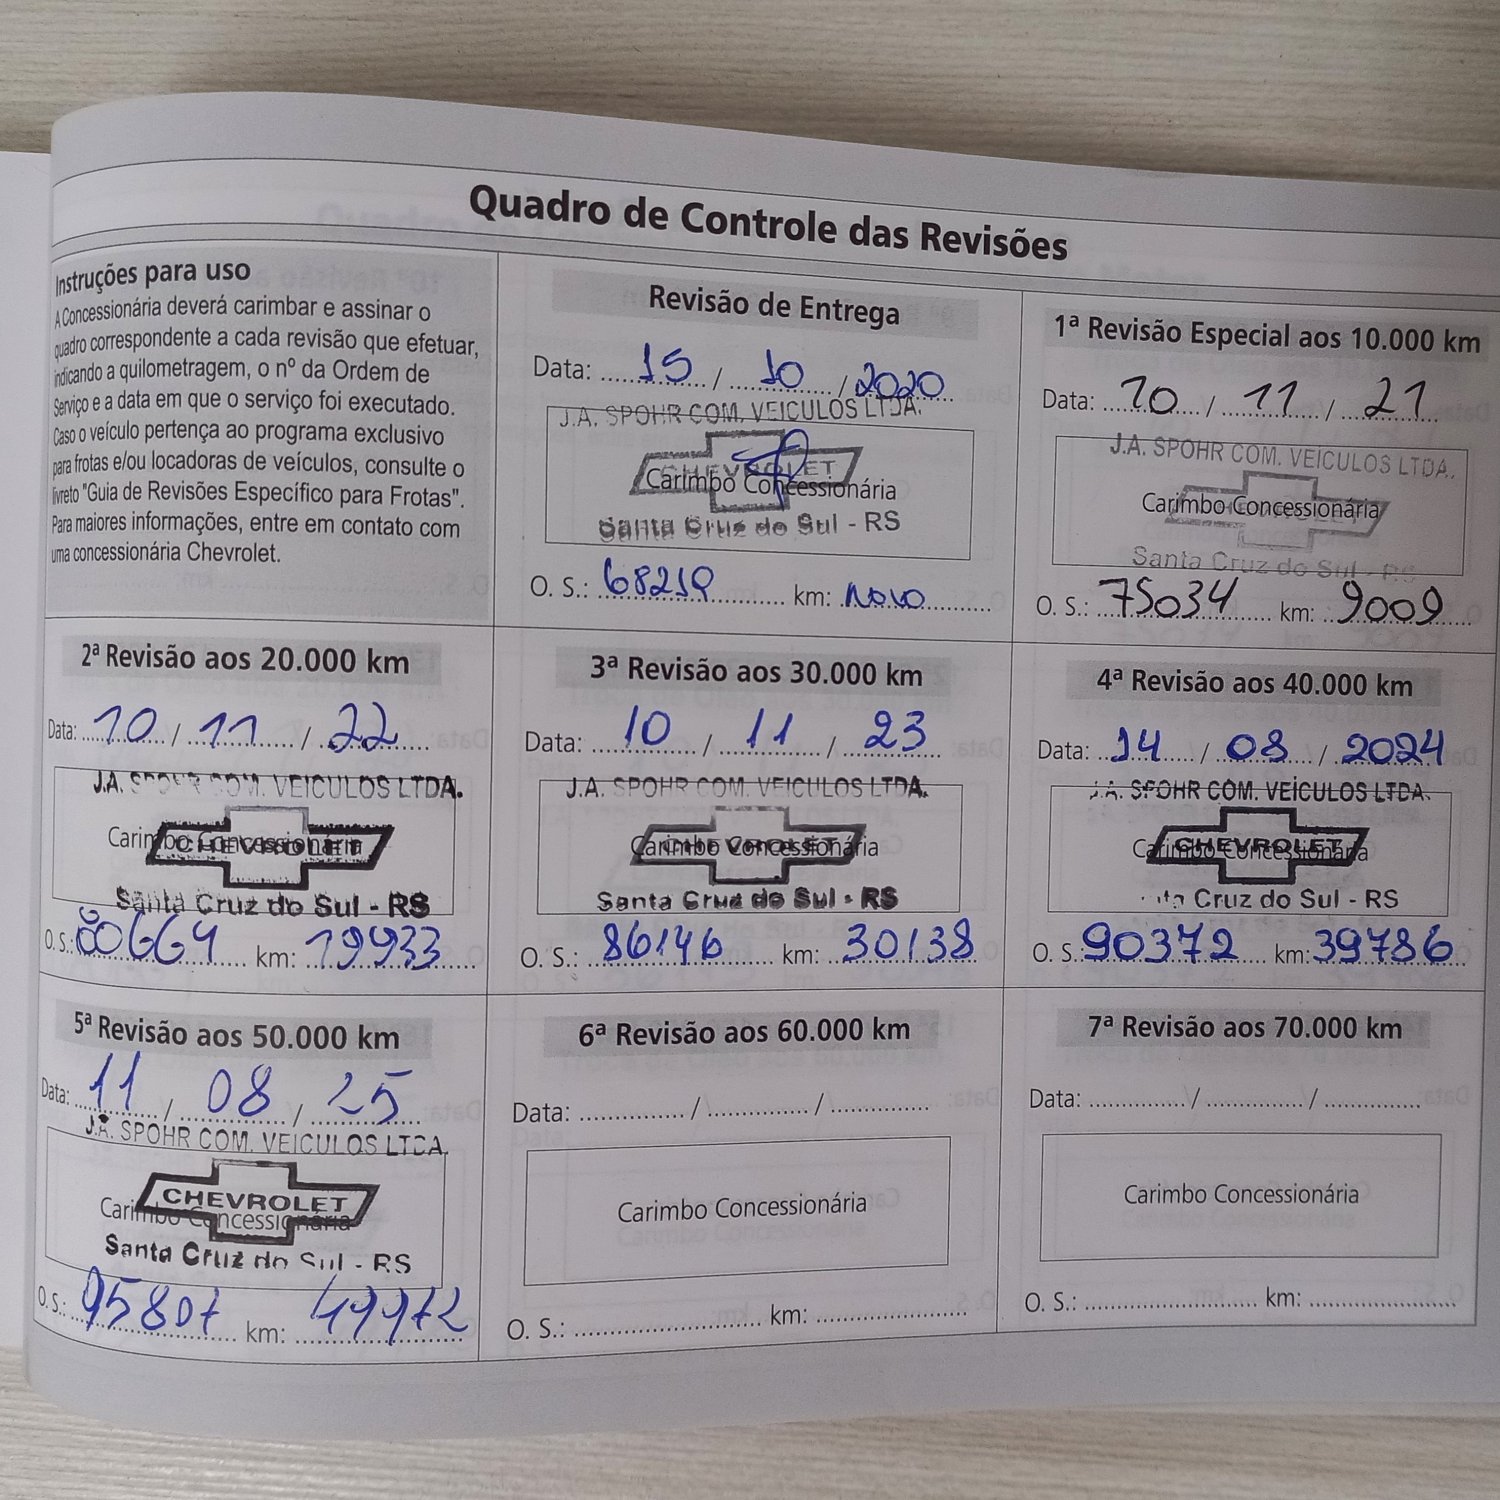 Quadro de Controle das Revisões
Instruções para uso
A Concessionária deverá carimbar e assinar o
quadro correspondente a cada revisão que efetuar,
indicando a quilometragem, o nº da Ordem de
Serviço e a data em que o serviço foi executado.
Caso o veículo pertença ao programa exclusivo
para frotas e/ou locadoras de veículos, consulte o
livreto "Guia de Revisões Específico para Frotas".
Para maiores informações, entre em contato com
uma concessionária Chevrolet.
Revisão de Entrega
Data: 15 / 10 / 2020
J.A. SPOHR COM. VEICULOS LTDA.
CHEVROLET
Carimbo Concessionária
Santa Cruz do Sul - RS
O. S.: 68219 km: novo
1ª Revisão Especial aos 10.000 km
Data: 10 / 11 / 21
J.A. SPOHR COM. VEICULOS LTDA.
Carimbo Concessionária
Santa Cruz do Sul - RS
O. S.: 75034 km: 9009
2ª Revisão aos 20.000 km
Data: 10 / 11 / 22
J.A. SPOHR COM. VEICULOS LTDA.
Carimbo Concessionária
CHEVROLET
Santa Cruz do Sul - RS
O. S.: 80664 km: 19933
3ª Revisão aos 30.000 km
Data: 10 / 11 / 23
J.A. SPOHR COM. VEICULOS LTDA.
Carimbo Concessionária
CHEVROLET
Santa Cruz do Sul - RS
O. S.: 86146 km: 30138
4ª Revisão aos 40.000 km
Data: 14 / 08 / 2024
J.A. SPOHR COM. VEICULOS LTDA.
CHEVROLET
Carimbo Concessionária
Cruz do Sul - RS
O. S.: 90372 km: 39786
5ª Revisão aos 50.000 km
Data: 11 / 08 / 25
J.A. SPOHR COM. VEICULOS LTDA.
CHEVROLET
Carimbo Concessionária
Santa Cruz do Sul - RS
O. S.: 95807 km: 49972
6ª Revisão aos 60.000 km
Data: ............... / ............... / ...............
Carimbo Concessionária
O. S.: ............... km: ...............
7ª Revisão aos 70.000 km
Data: ............... / ............... / ...............
Carimbo Concessionária
O. S.: ............... km: ...............